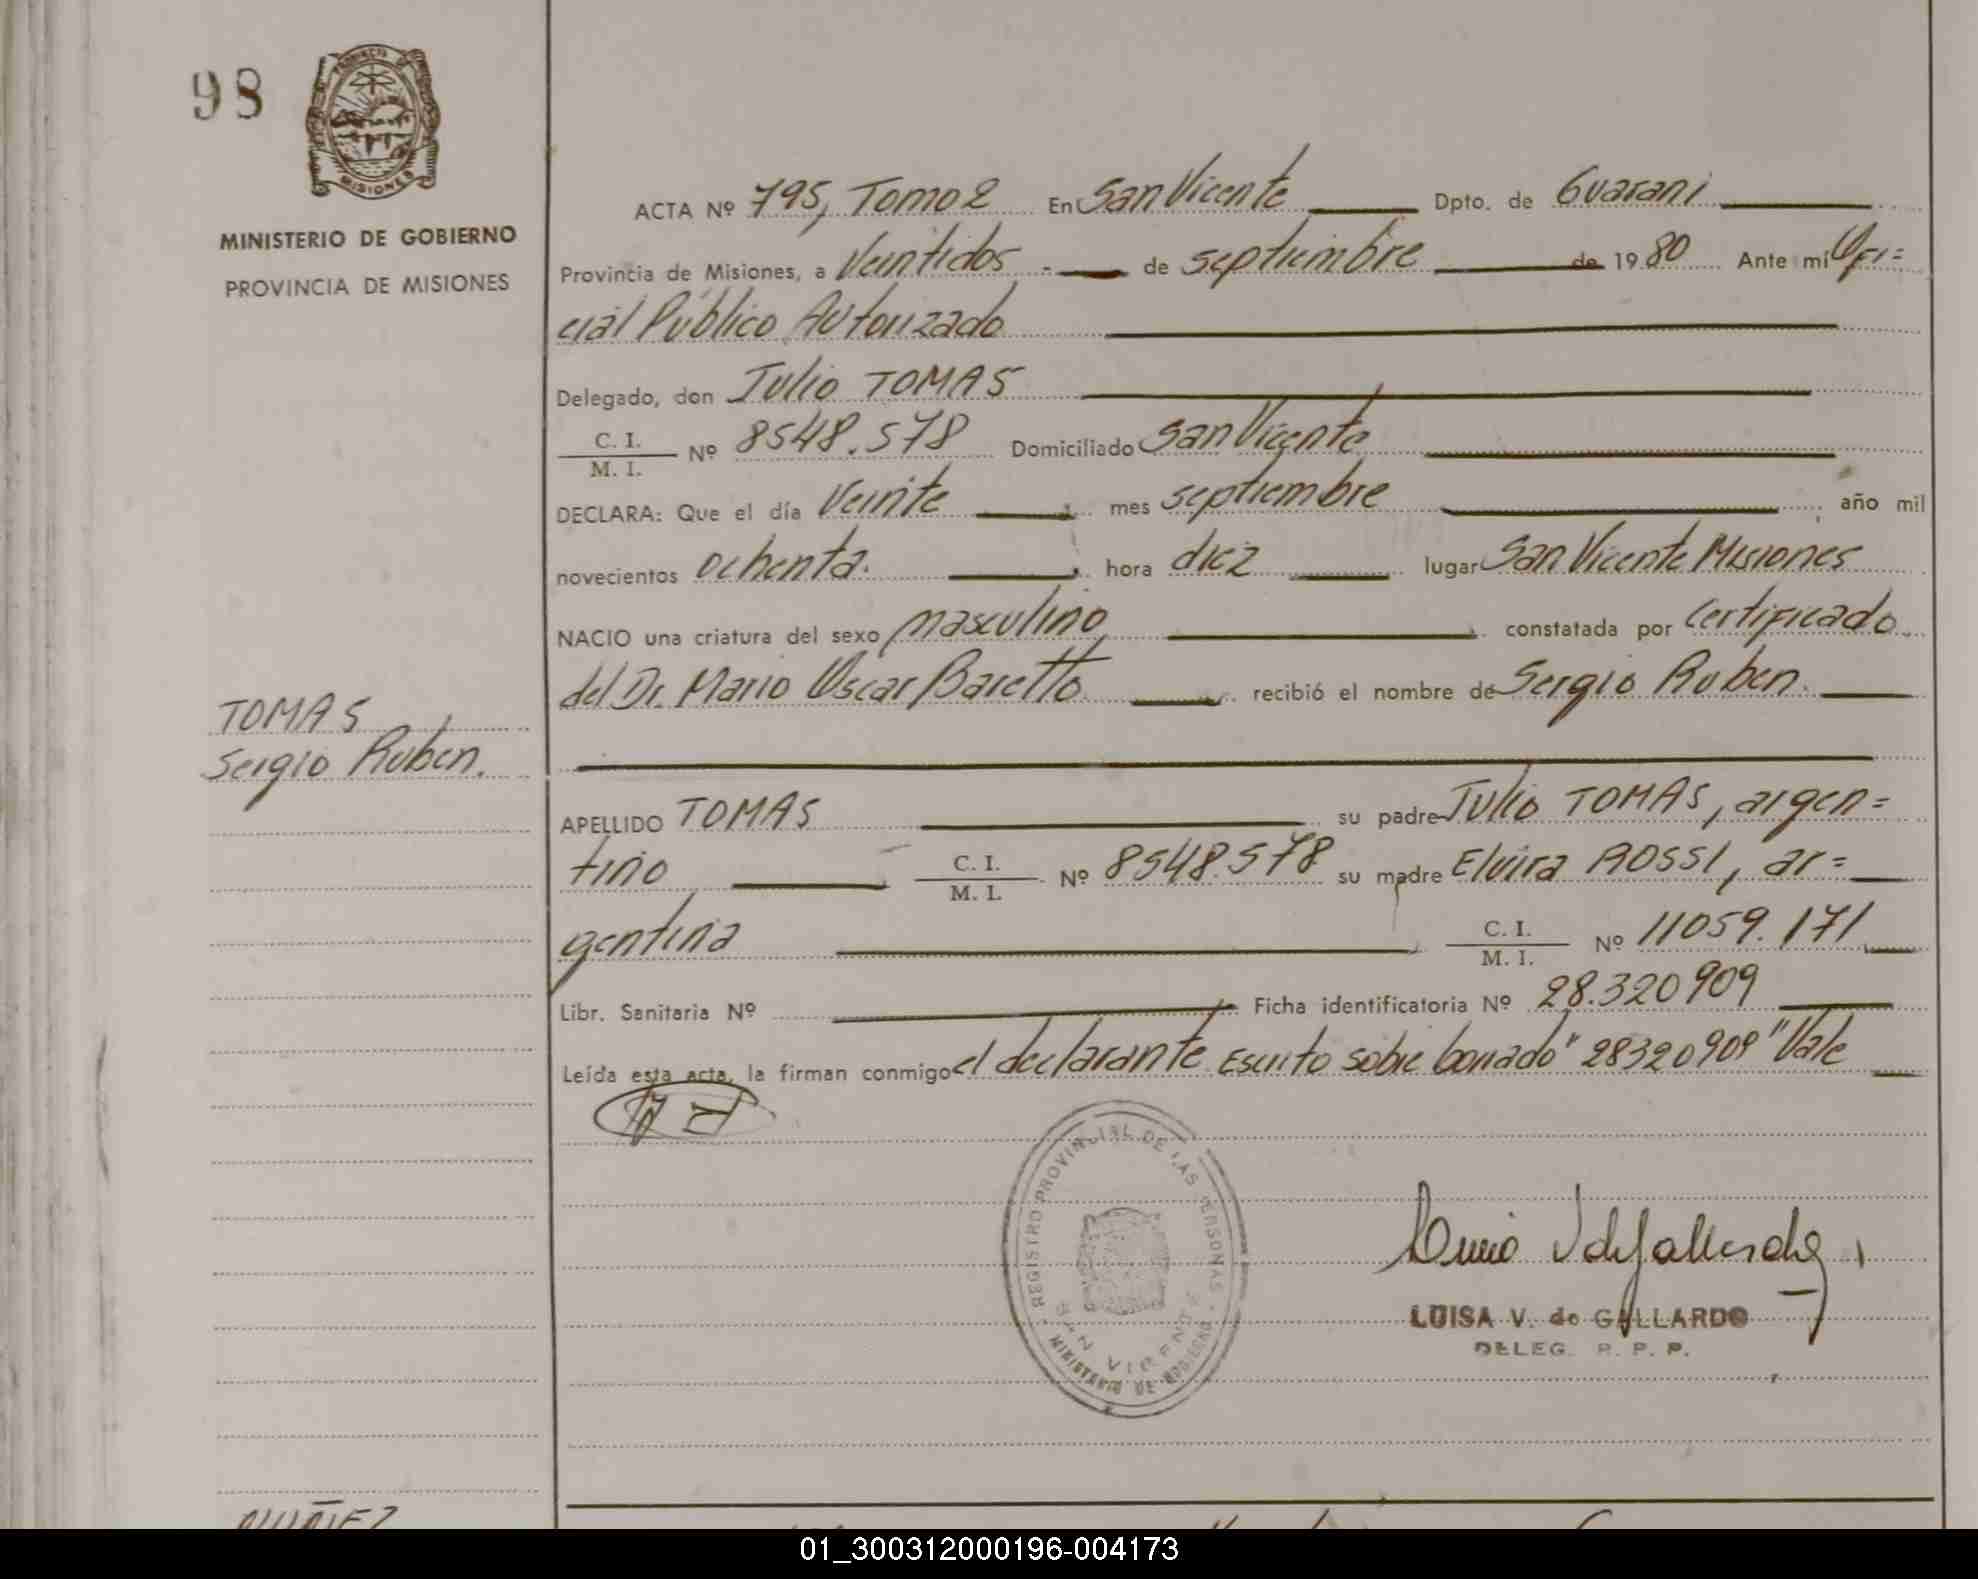 98
PROVINCIA DE
MISIONES
MINISTERIO DE GOBIERNO
PROVINCIA DE MISIONES
ACTA Nº 795, Tomo 2 En San Vicente Dpto. de Guarani
Provincia de Misiones, a Veintidos de septiembre de 1980 Ante mí Ofi=
cial Público Autorizado
Delegado, don Julio TOMAS
C. I.
M. I. Nº 8548.578 Domiciliado San Vicente
DECLARA: Que el día Veinte mes septiembre, año mil
novecientos ochenta. hora diez lugar San Vicente Misiones
NACIO una criatura del sexo masculino, constatada por Certificado
del Dr. Mario Oscar Baretto recibió el nombre de Sergio Ruben.
TOMAS
Sergio Ruben.
APELLIDO TOMAS su padre Julio TOMAS, argen=
tino C. I. M. I. Nº 8548.578 su madre Elvira ROSSI, ar=
gentina C. I. M. I. Nº 11059.171
Libr. Sanitaria Nº Ficha identificatoria Nº 28.320909
Leída esta acta, la firman conmigo el declarante Escrito sobre borrado "28320909" Vale
REGISTRO PROVINCIAL DE LAS PERSONAS
SAN VICENTE
MINISTERIO DE GOBIERNO
LUISA V. de GALLARDO
DELEG. R. P. P.
01_300312000196-004173